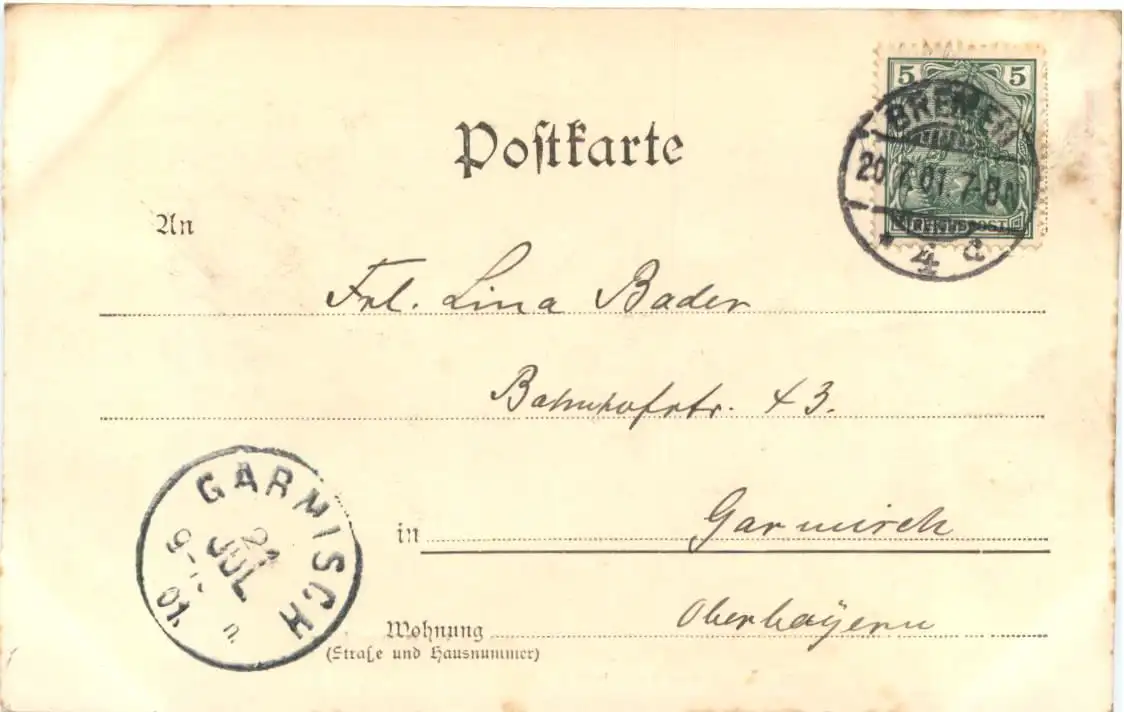 5 5
BREMEN
20.7.01.7-8N
REICHSPOST
* 4 d
Postkarte
An
Frl. Lina Bader
Bahnhofstr. 43.
GARMISCH
21
JUL
01.
in Garmisch
Oberbayern
Wohnung
(Straße und Hausnummer)